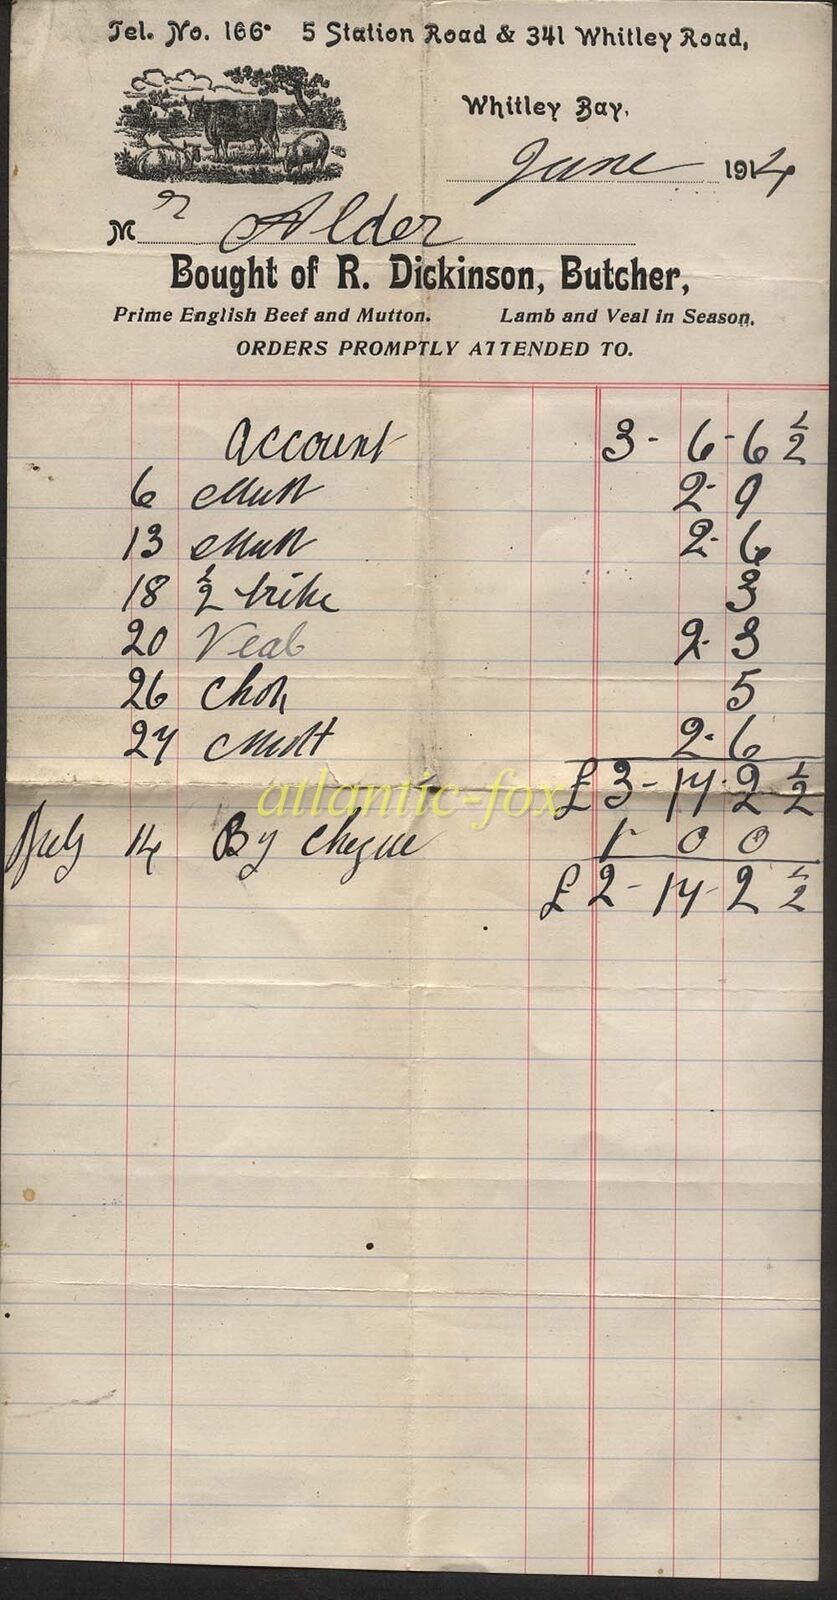 Tel. No. 166. 5 Station Road & 341 Whitley Road,
Whitley Bay.
June 1914
Mr Alder
Bought of R. Dickinson, Butcher,
Prime English Beef and Mutton. Lamb and Veal in Season.
ORDERS PROMPTLY ATTENDED TO.
Account 3 - 6 - 6 1/2
6 Mutt 2 - 9
13 Mutt 2 - 6
18 1/2 3
20 Veal 2 - 3
26 Chop 5
27 Mutt 2 - 6
£ 3 - 14 - 2 1/2
atlantic-fox
July 14 By Cheque 1 - 0 0
£ 2 - 14 - 2 1/2
atlantic-fox